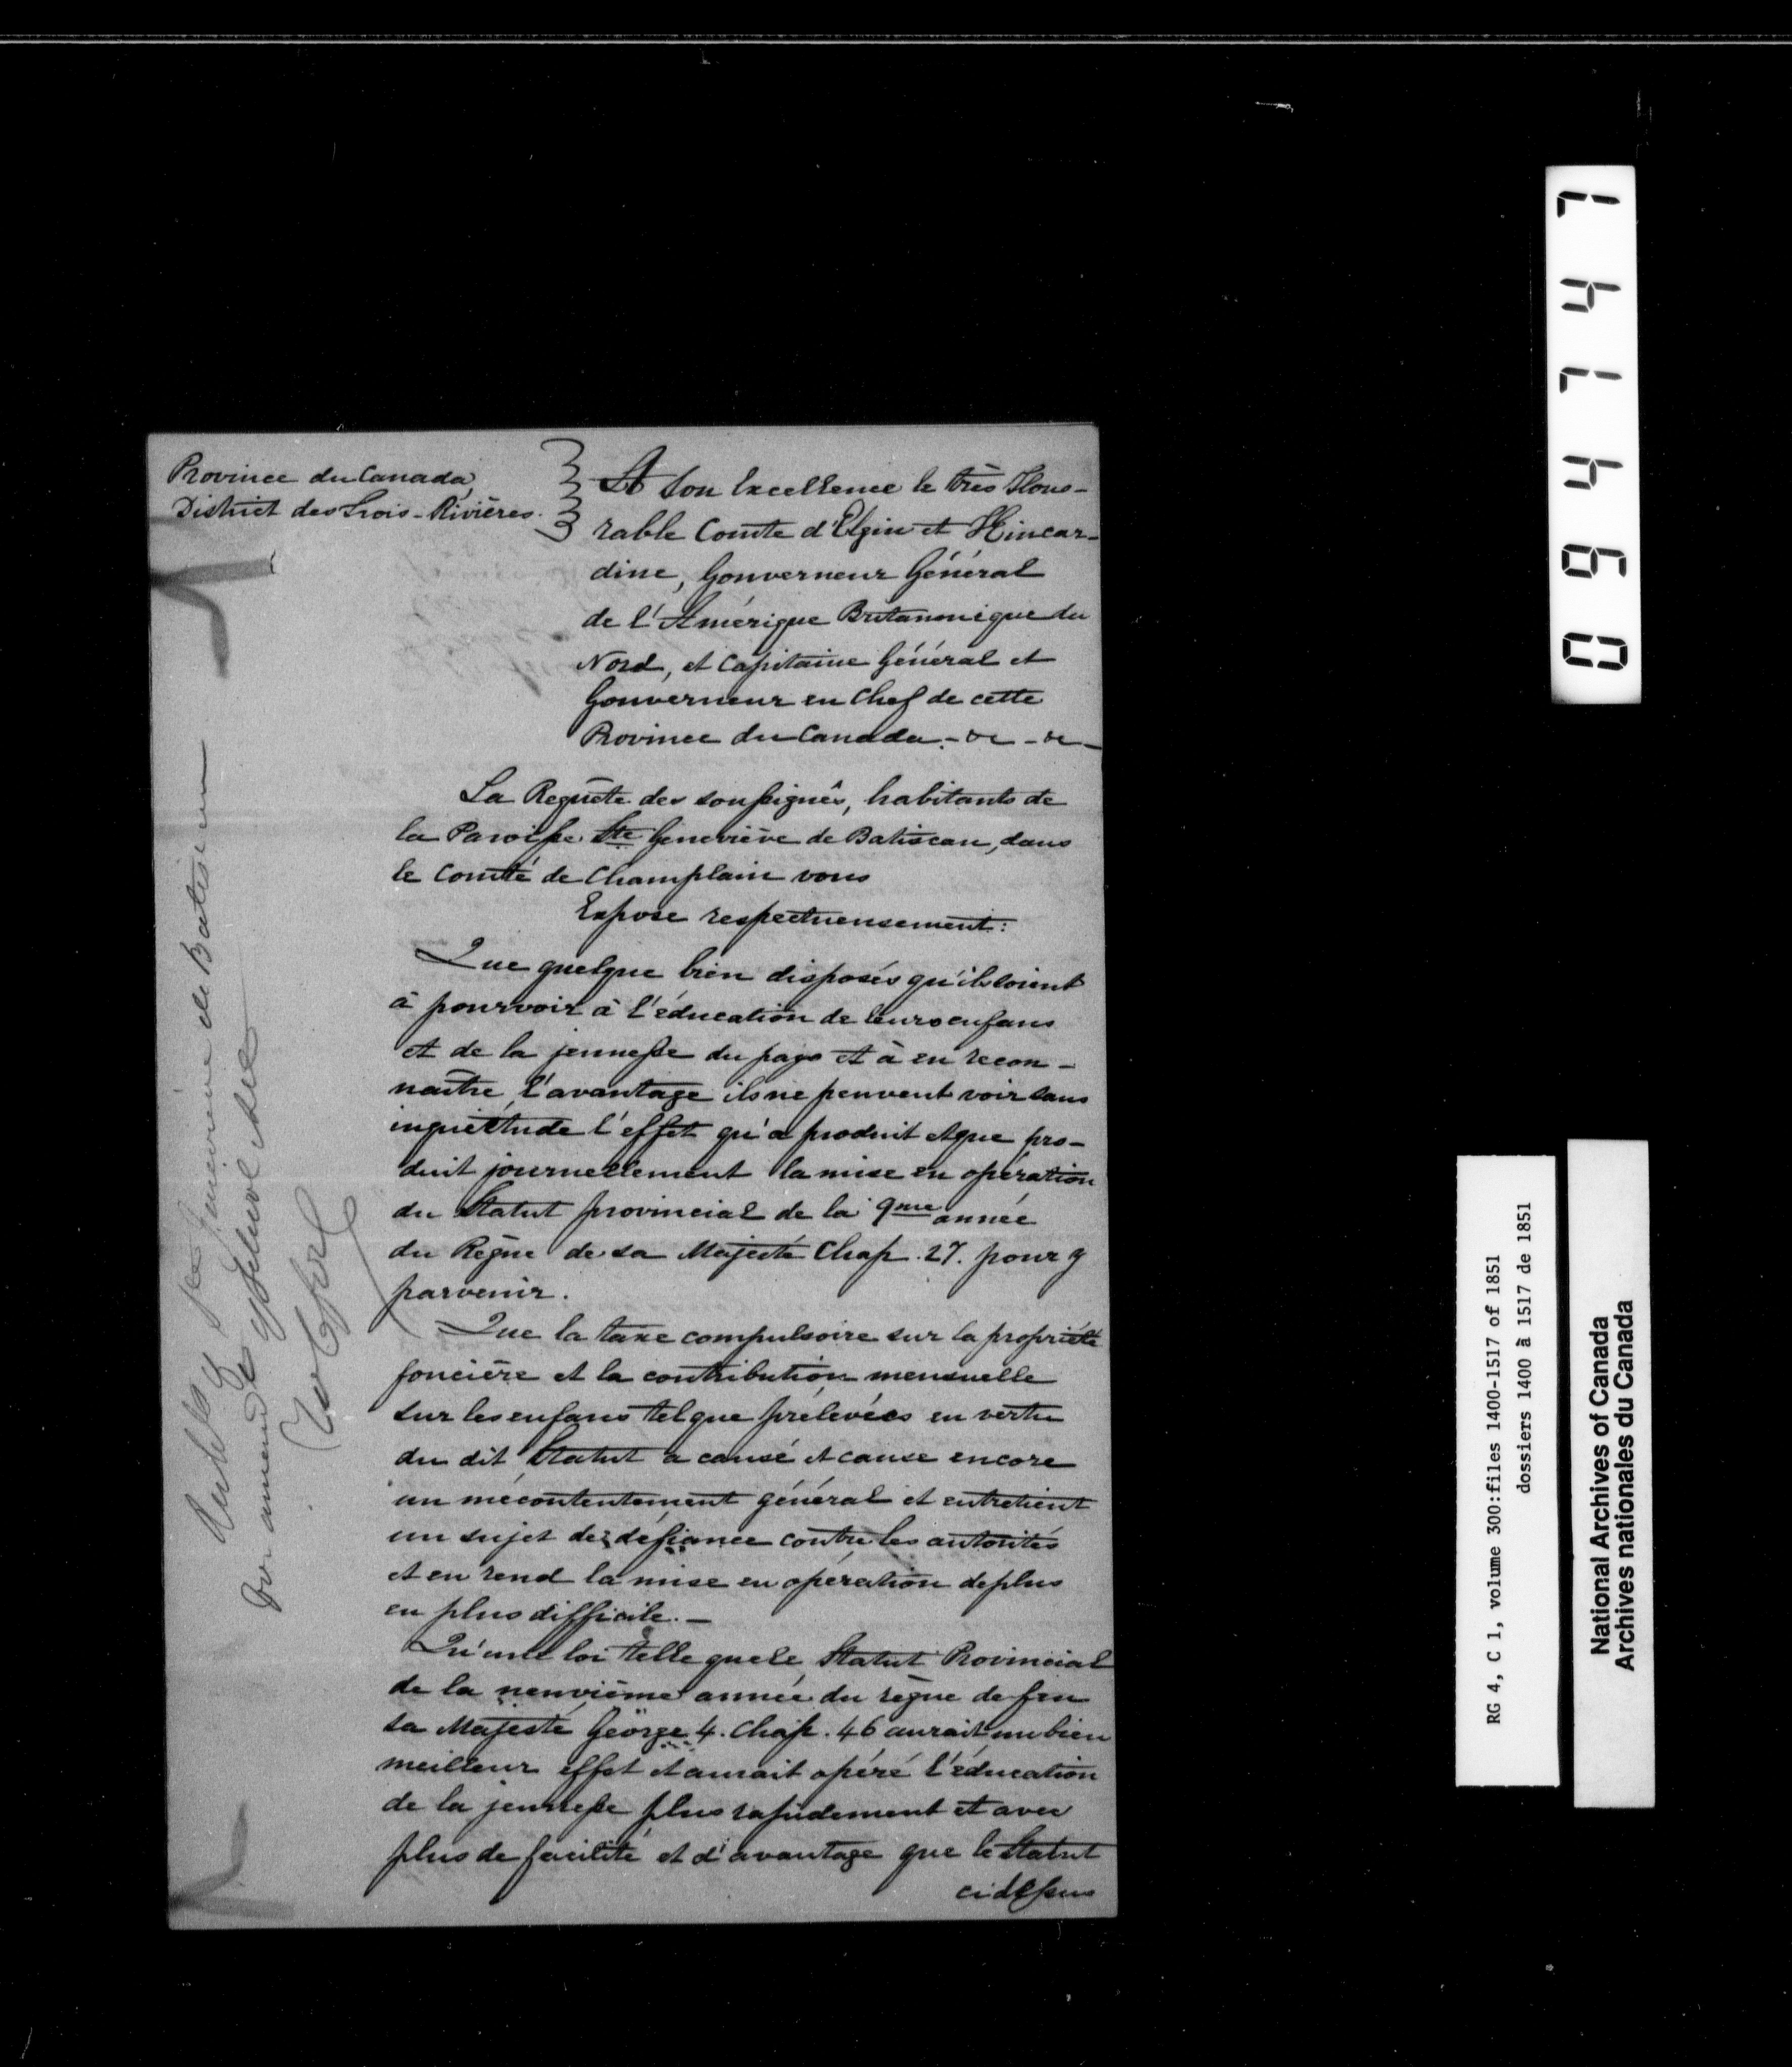 Province du Canada,
District des Trois-Rivières.
A Son Excellence le très Hono-
rable Comte d'Elgin et Kincar-
dine, Gouverneur Général
de l'Amérique Britannique du
Nord, et Capitaine Général et
Gouverneur en Chef de cette
Province du Canada.- &c - &c -
La Requête des soussignés, habitants de
la Paroisse Ste Geneviève de Batiscan, dans
le Comté de Champlain vous
Expose respectueusement:
Que quelque bien disposés qu'ils soient
à pourvoir à l'éducation de leurs enfans
et de la jeunesse du pays et à en recon-
naître l'avantage ils ne peuvent voir sans
inquiettude l'effet qu'a produit et que pro-
duit journellement la mise en opération
du Statut provincial de la 9me année
du Règne de sa Majesté Chap. 27. pour y
parvenir.
Que la taxe compulsoire sur la propriété
foncière et la contribution mensuelle
sur les enfans tel que prélevées en vertu
du dit Statut a causé et cause encore
un mécontentement général et entretient
un sujet de défiance contre les autorités
et en rend la mise en opération de plus
en plus difficile.-
Qu'une loi telle que le Statut Provincial
de la neuvième année du règne de feu
sa Majesté Geörge 4. Chap. 46 aurait un bien
meilleur effet et aurait opéré l'éducation
de la jeunesse plus rapidement et avec
plus de facilité et d'avantage que le Statut
ci dessus
de Batiscan
094747
RG 4, C 1, volume 300:files 1400-1517 of 1851
dossiers 1400 à 1517 de 1851
National Archives of Canada
Archives nationales du Canada